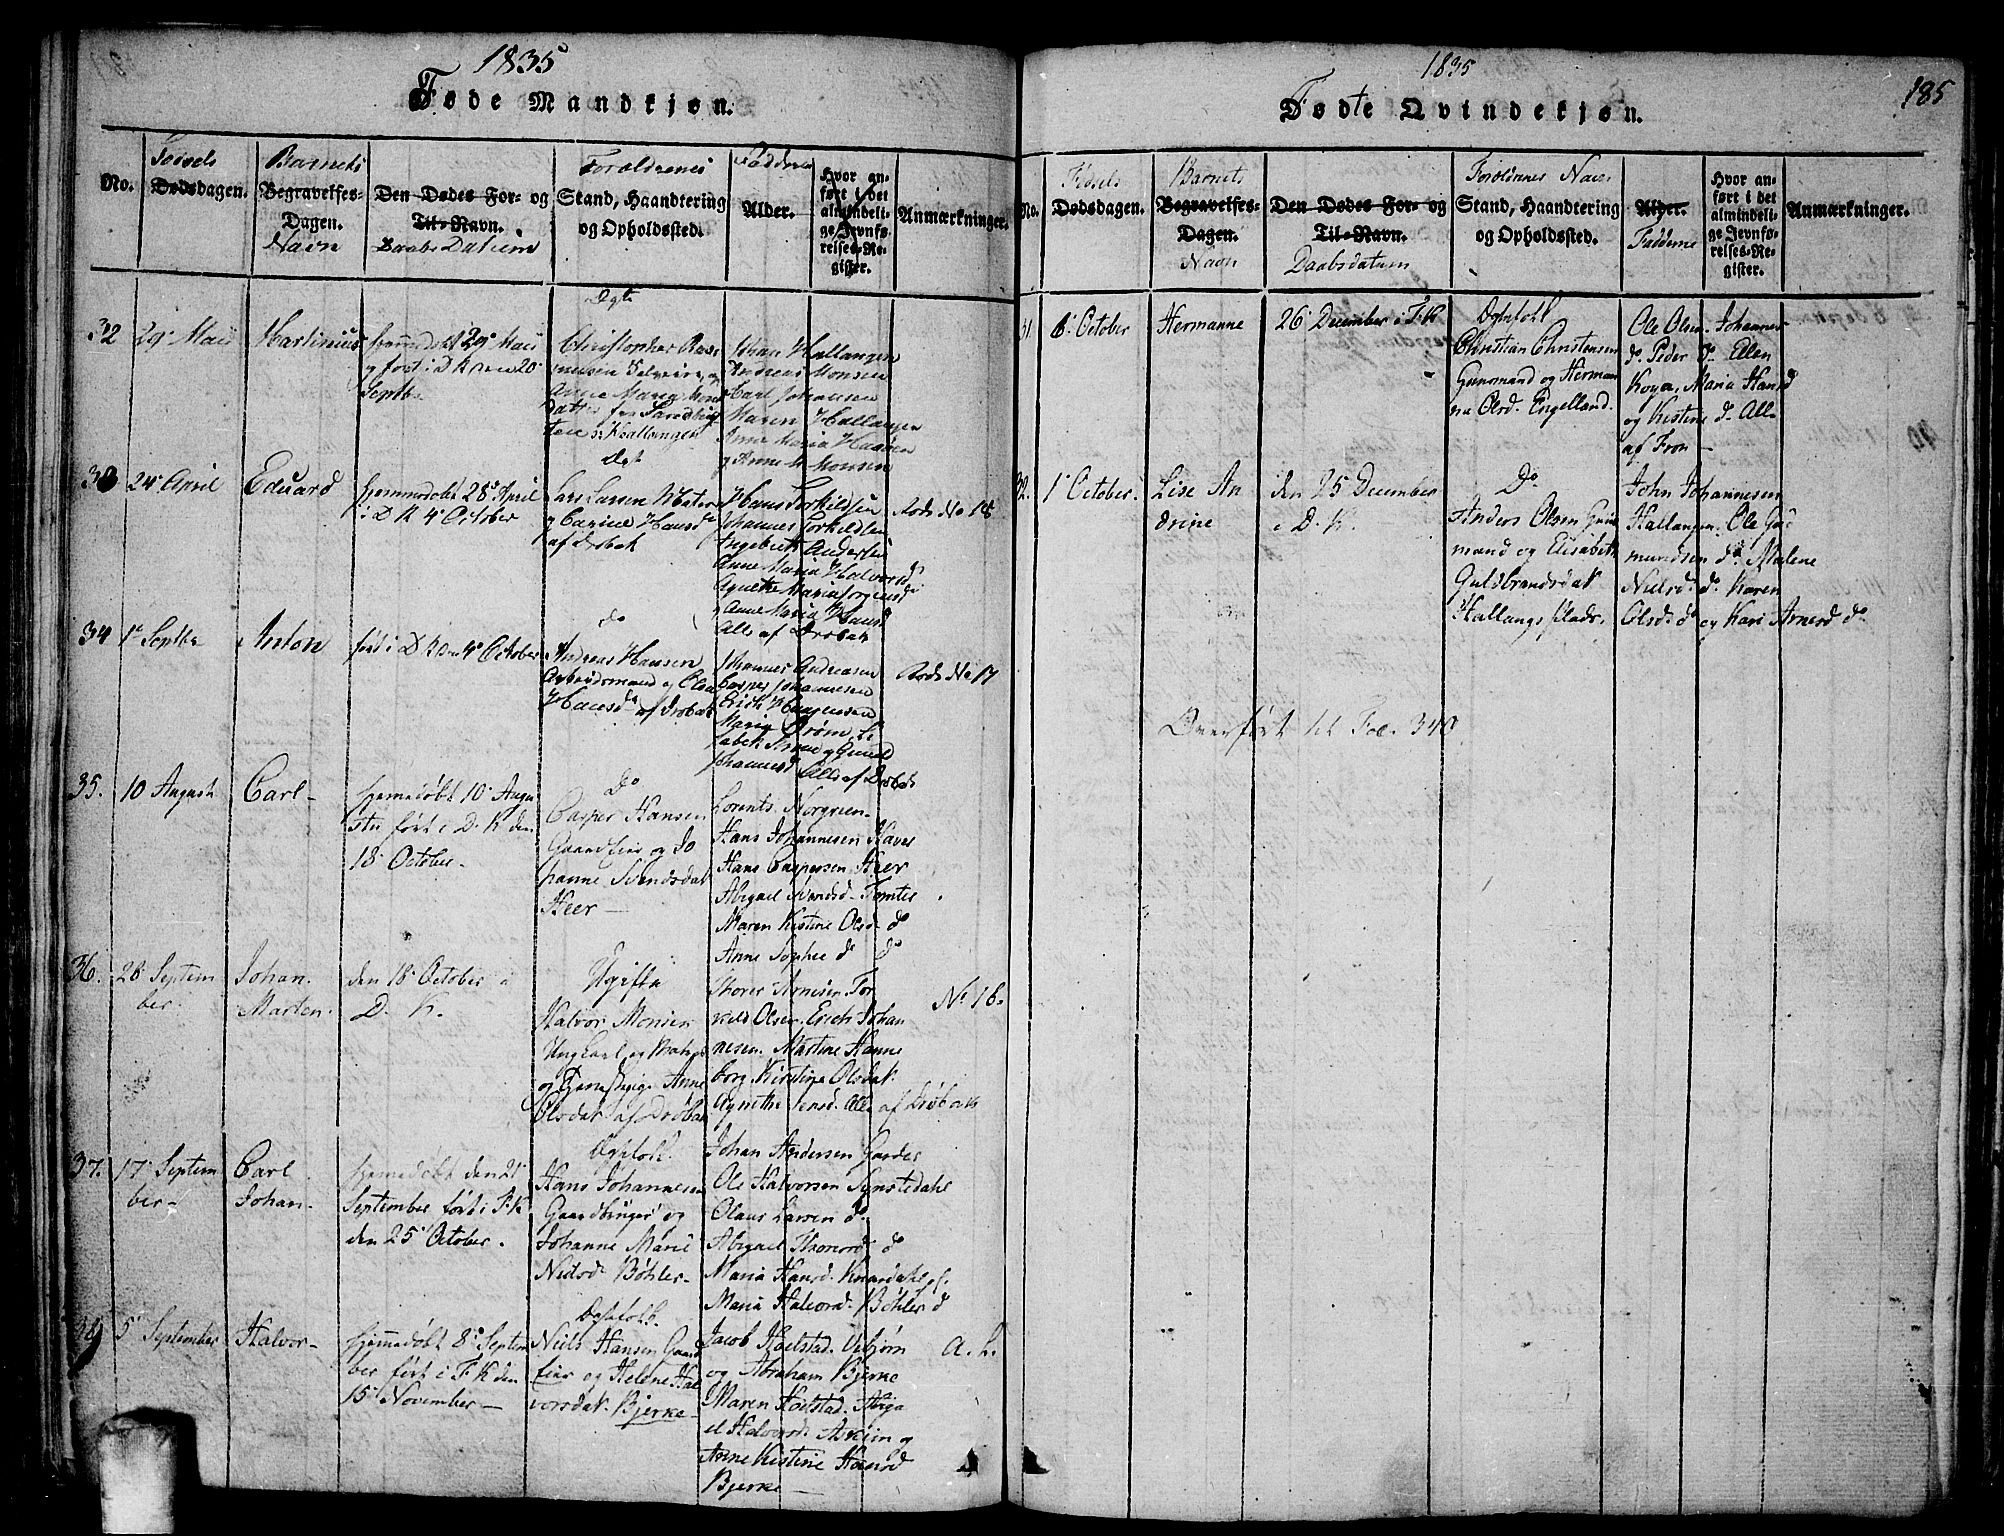 1835
Føde Mandkjøn.
No.
Fødsels
Dødsdagen.
Barnets
Begravelses-
Dagen.
Navn
Den Dødes For- og
Til-Navn.
Daabs Datum
Forældrenes
Stand, Haandtering
og Opholdssted.
Faddere
Alder.
Hvor an-
ført i det
almindeli-
ge Jevnfø-
relses-Re-
gister.
Anmærkninger.
32
29 Maii
Martinius
hjemmedøbt 29 Maii
og ført i D K den 20
Septbr
Ægte
Christopher Ras-
mussen
Johan Hallangen
Andreas Monsen
Carl Johansen
Maren Hallangen
Anne Maria
og Anne M Monsen
33
24 April
Eduard
hjemmedøbt 28 April
i D K 4 October
Ægt
Lars Larsen
og Carine Hansd
af Drøbak
Hans Torkildsen
Johannes Torkildsen
Ingebreth Andersen
Anne Maria Halvorsd
Agnethe Maria Jørgensd
og Anne Maria Hansd
Alle af Drøbak
Rods No 18
34
1 Septbr
Anton
ført i D K den 4 October
do
Andreas Hansen
Arbeidsmand og Olea
Hansd af Drøbak
Johannes Andreasen
Casper Johannesen
Erich Haagensen
Maria Strøm, Li
sabeth Strøm og Gunild
Johannesd Alle af Drøbak
Rods No 17
35.
10 August
Carl -
hjemedøbt 10 Augu
stu ført i D. K den
18 October -
Do
Casper Hansen
Gaardfeier og Jo
hanne Svendsdat
Heer -
Lorents Norgreen
Hans Johannesen Haver
Hans Caspersen Heer
Abigael Svendsd. Tomter
Maren Kistine Olsd. do
Anne Sophie do do
36.
26 Septem
ber -
Johan
Marten.
den 18 October i
D. K.
Ugifte
Halvor Monsen
Ungkarl og
og Pige Anne
Olsdat af Drøbak
Thorer Arnesen Tor
kild Olsen. Erich Johan
nesen. Martine Hanne
borg. Kirstine Olsdat.
Agnethe Jensd. Alle af Drøbak
No 16.
37.
17 Septem
ber -
Carl
Johan -
hjemedøbt den 21
September ført i F. K
den 25 October.
Ægtefolk.
Hans Johannesen
Gaardbruger og
Johanne Marie
Nielsd. Bøhler -
Johan Andersen Garder
Ole Halvorsen Synstedahl
Olaus Larsen do
Abigael Thorsd. do
Maria Hansd. Knardahl pl.
Maria Halvorsd. Bøhler do
38
5 September
Halvor -
hjemedøbt 8 Septem
ber ført i F. K den
15 November -
Ægtefolk.
Niels Hansen Gaard
feier og Helene Hal
vorsdat. Bjerke -
Jacob Hoelstad. Vebjørn
og Abraham Bjerke
Maren Hoelstad. Abiga
el Halvorsd. Askim og
Anne Kistine Hansd
Bjerke -
A. L.
1835
185
Fødte Qvindekjøn.
No.
Fødsels
Dødsdagen.
Barnets
Begravelses-
Dagen.
Navn
Den Dødes For- og
Til-Navn.
Daabsdatum
Forældrenes Navn
Stand, Haandtering
og Opholdssted.
Alder.
Fadderne
Hvor an-
ført i det
almindeli-
ge Jevnfø-
relses-Re-
gister.
Anmærkninger.
31.
6 October
Hermanne
26 December i F. K
Ægtefolk
Christian Christensen
Huusmand og Herman
na Olsd. Engelland.
Ole Olsen. Johannes
do. Peder do. Ellen
Koyer, Maria Hansd
og Kistine do. Alle
af Fron -
32.
1 October.
Lise An
drine
den 25 December
i D. K.
Do
Anders Olsen Huus
mand og Elisabeth
Guldbrandsdat
Hallangs plads.
John Johannesen
Hallangen. Ole Gud
mundsen do. Malene
Nielsd. do. Karen
Olsd. do og Kari Arnesd do
Overført til Fol. 340